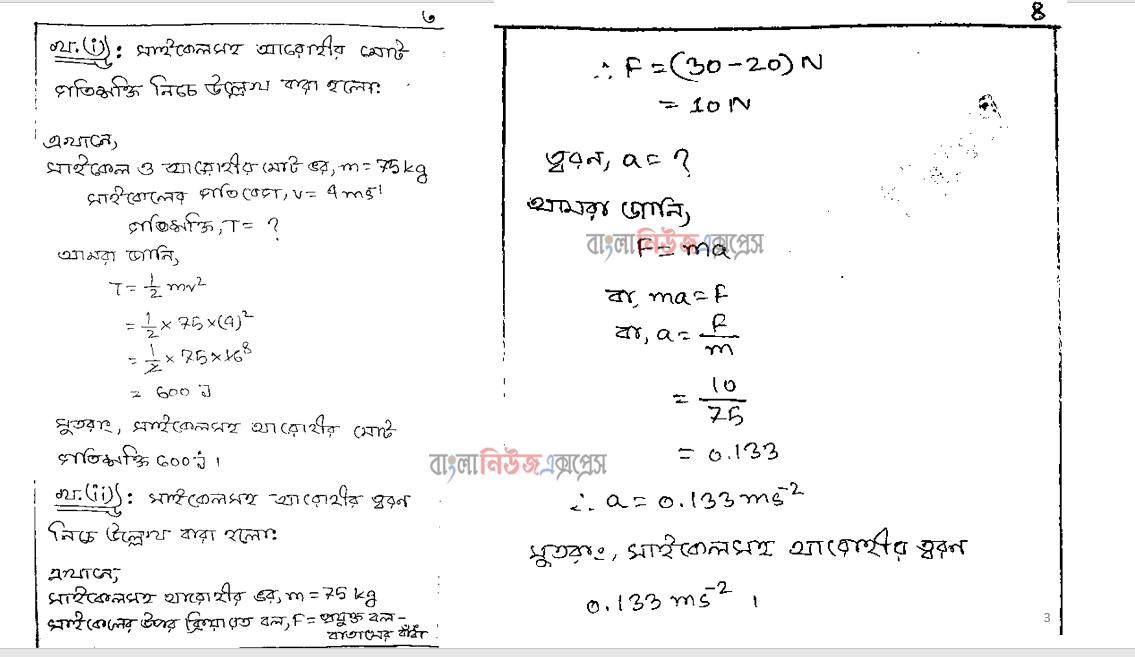 ৩
খ.(i): সাইকেলসহ আরোহীর মোট
গতিশক্তি নিচে উল্লেখ করা হলো:
এখানে,
সাইকেল ও আরোহীর মোট ভর, m = 75 kg
সাইকেলের গতিবেগ, v = 4 ms⁻¹
গতিশক্তি, T = ?
আমরা জানি,
T = 1/2 mv²
= 1/2 × 75 × (4)²
= 1/2 × 75 × 16 8
= 600 J
সুতরাং, সাইকেলসহ আরোহীর মোট
গতিশক্তি 600 J ।
খ.(ii): সাইকেলসহ আরোহীর ত্বরণ
নিচে উল্লেখ করা হলো:
এখানে,
সাইকেলসহ আরোহীর ভর, m = 75 kg
সাইকেলের উপর ক্রিয়ারত বল, F = প্রযুক্ত বল -
বাতাসের বাঁধা
8
∴ F = (30 - 20) N
= 10 N
ত্বরণ, a = ?
আমরা জানি,
F = ma
বা, ma = F
বা, a = F/m
= 10/75
= 0.133
∴ a = 0.133 ms⁻²
সুতরাং, সাইকেলসহ আরোহীর ত্বরণ
0.133 ms⁻² ।
বাংলা নিউজ এক্সপ্রেস
বাংলা নিউজ এক্সপ্রেস
3